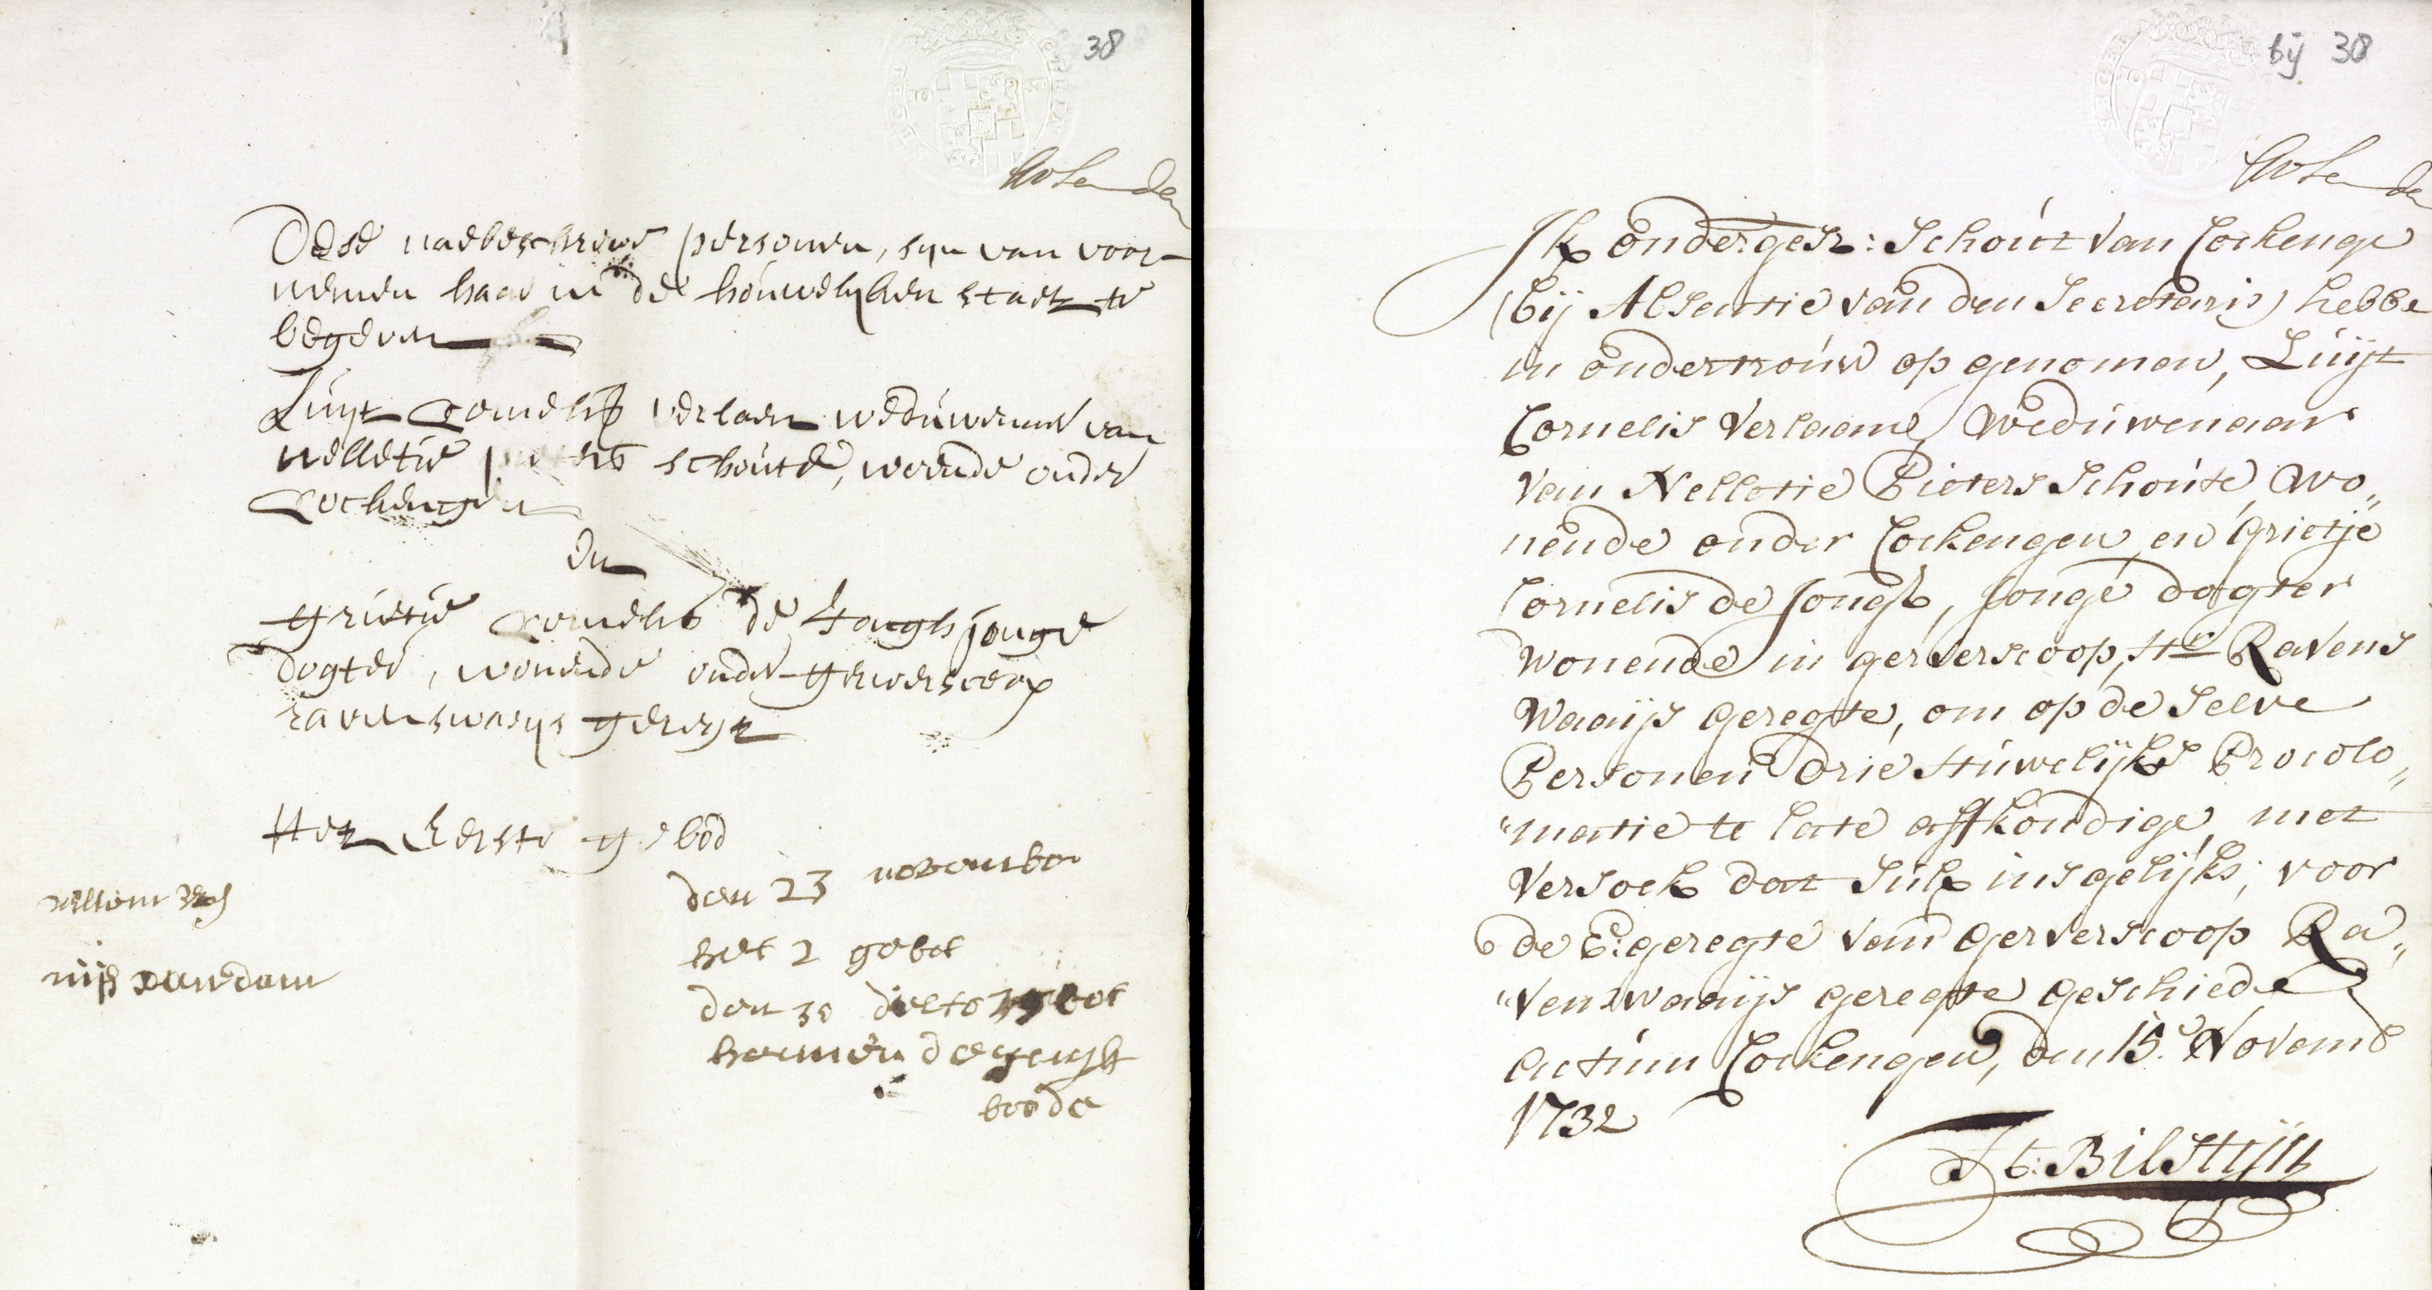 38
Dese naebeschreve personen, syn van voor-
nemen haar in de houwelyken staet te
begeven
Luyt Cornelis verlaen weduwenaer van
nelletie pieters schoute, woende onder
Cockengen
En
Grietie Cornelis de Jongh jonge
dogter, wonende onder Gerverscoop
ravenswaeys gereght
Het Eerste gebod
den 23 november
willem
het 2 gebot
nijs
den 30 ditto
hermen de jongh
boode
bij 38
Ik onderges: Schout van Cockenge
(bij Absentie van den Secretaris) hebbe
in ondertrouw op genomen, Luijt
Cornelis Verlaane, Weduwenaar
van Nelletie Pieters Schoute, wo„
nende onder Cockengen, en Grietje
Cornelis de Jongh, Jonge dogter
wonende in gerverscoop, Ravens
Waaijs geregte, om op de selve
Personen drie Huwelijks Proclo„
„matie te late affkondige, met
Versoek dat Sulx insgelijks, voor
de E: geregte van Gerverscoop Ra„
„venswaaijs geregte geschiede
Actum Cockengen, den 15e Novemb
1732
Bilstijn